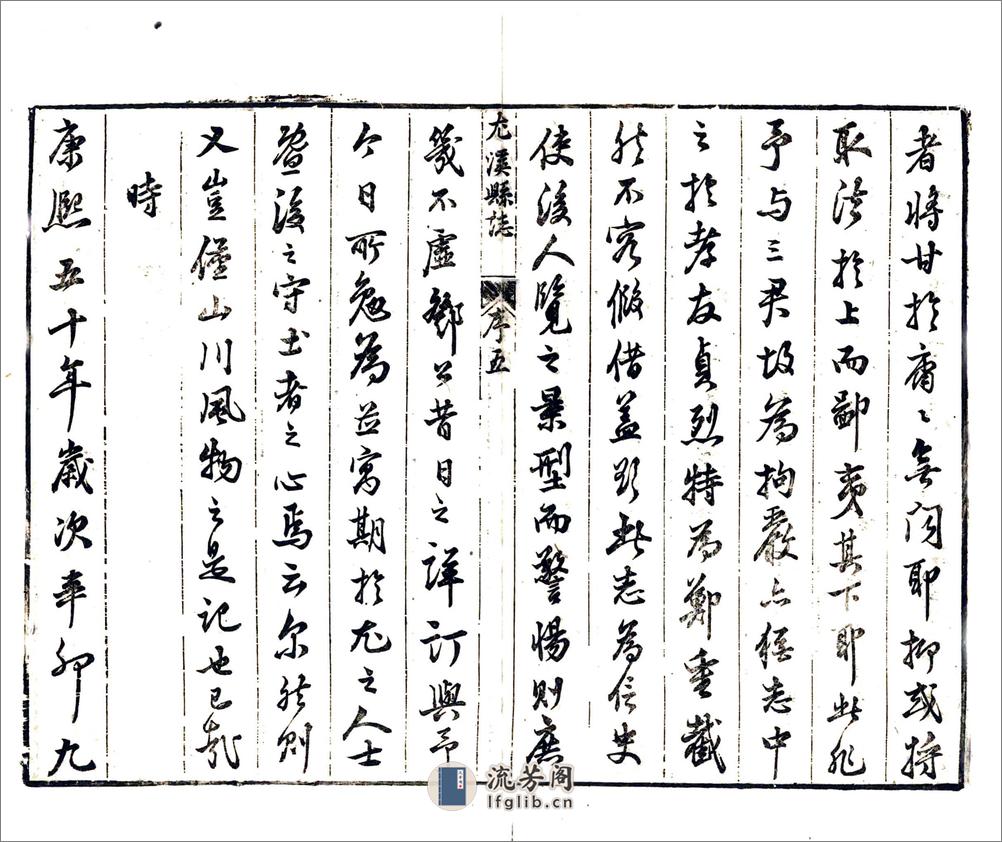 者將甘於庸〻無聞耶抑或將
取法於上而鄙夷其下耶此非
予与三君故為拘嚴亦猶志中
之於孝友貞烈特為鄭重截
然不容假借蓋欲此志為信史
使後人覽之景型而警惕則庶
尤溪縣誌 序五
幾不虛鄧公昔日之詳訂與予
今日所勉為並寓期於尤之人士
暨後之守土者之心焉云尔然則
又豈僅山川風物之是記也已哉
時
康熙五十年歲次辛卯九
流芳阁
lfglib.cn